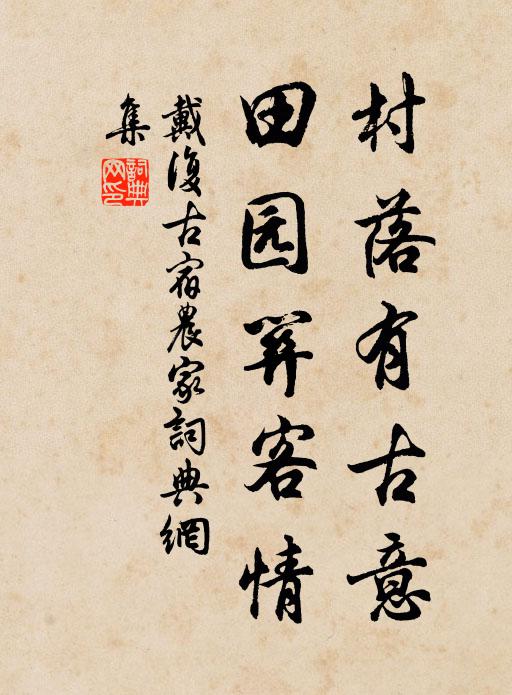 村落有古意
田园客情
戴復古宿農家詞典網
集
詞典
网印